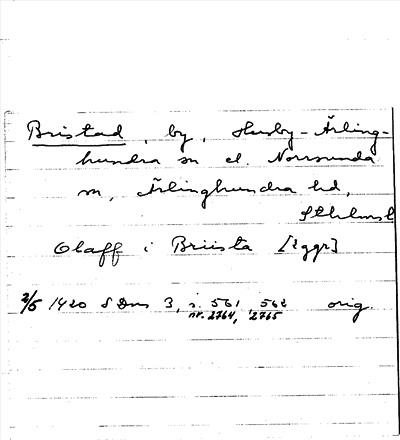 Bristad, by, Husby-Ärling-
hundra sn el. Norrsunda
sn, Ärlinghundra hd,
Sthlms l
Olaff i Briista [2ggr]
2/5 1420 SDns 3, s. 561, 562 orig.
nr. 2764, 2765